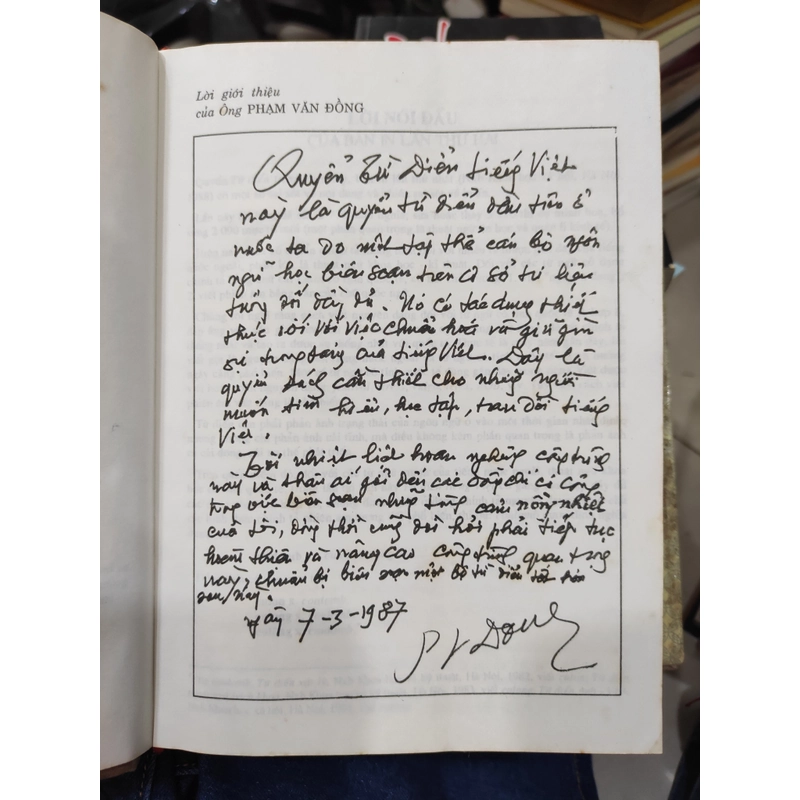 Lời giới thiệu
của Ông PHẠM VĂN ĐỒNG
Quyển Từ Điển tiếng Việt
này là quyển từ điển đầu tiên ở
nước ta do một tập thể cán bộ ngôn
ngữ học biên soạn trên cơ sở tư liệu
tương đối đầy đủ. Nó có tác dụng thiết
thực đối với việc chuẩn hoá và giữ gìn
sự trong sáng của tiếng Việt. Đây là
quyển sách cần thiết cho những người
muốn tìm hiểu, học tập, trau dồi tiếng
Việt.
Tôi nhiệt liệt hoan nghênh công trình
này và thân ái gửi đến các đồng chí có công
trong việc biên soạn những tình cảm nồng nhiệt
của tôi, đồng thời cũng đòi hỏi phải tiếp tục
hoàn thiện và nâng cao công trình quan trọng
này, chuẩn bị biên soạn một bộ từ điển tốt hơn
sau này.
ngày 7-3-1987
PVĐồng